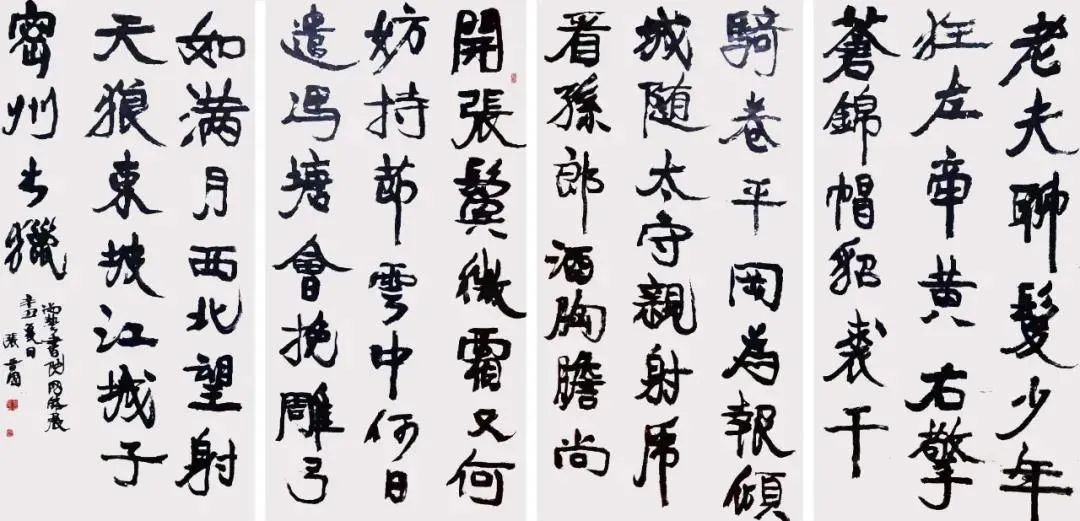 老夫聊髮少年
狂左牽黄右擎
蒼錦帽貂裘千
騎卷平岡為報傾
城随太守親射虎
看孫郎酒胸膽尚
開張鬢微霜又何
妨持節雲中何日
遣馮塘會挽雕弓
如满月西北望射
天狼東坡江城子
密州出獵
書院
辛丑夏日
張